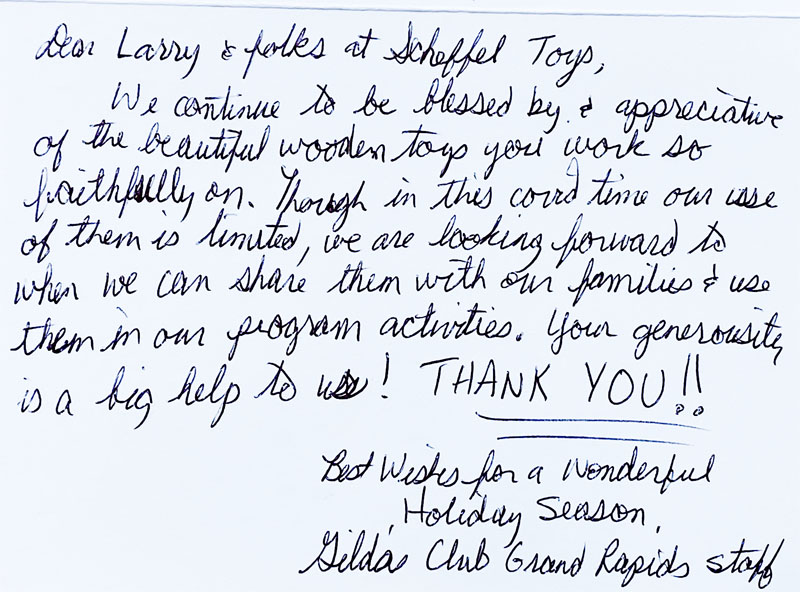 Dear Larry & folks at Scheffel Toys,
We continue to be blessed by & appreciative
of the beautiful wooden toys you work so
faithfully on. Though in this covid time our use
of them is limited, we are looking forward to
when we can share them with our families & use
them in our program activities. Your generousity
is a big help to us! THANK YOU!!
Best Wishes for a Wonderful
Holiday Season,
Gilda's Club Grand Rapids staff